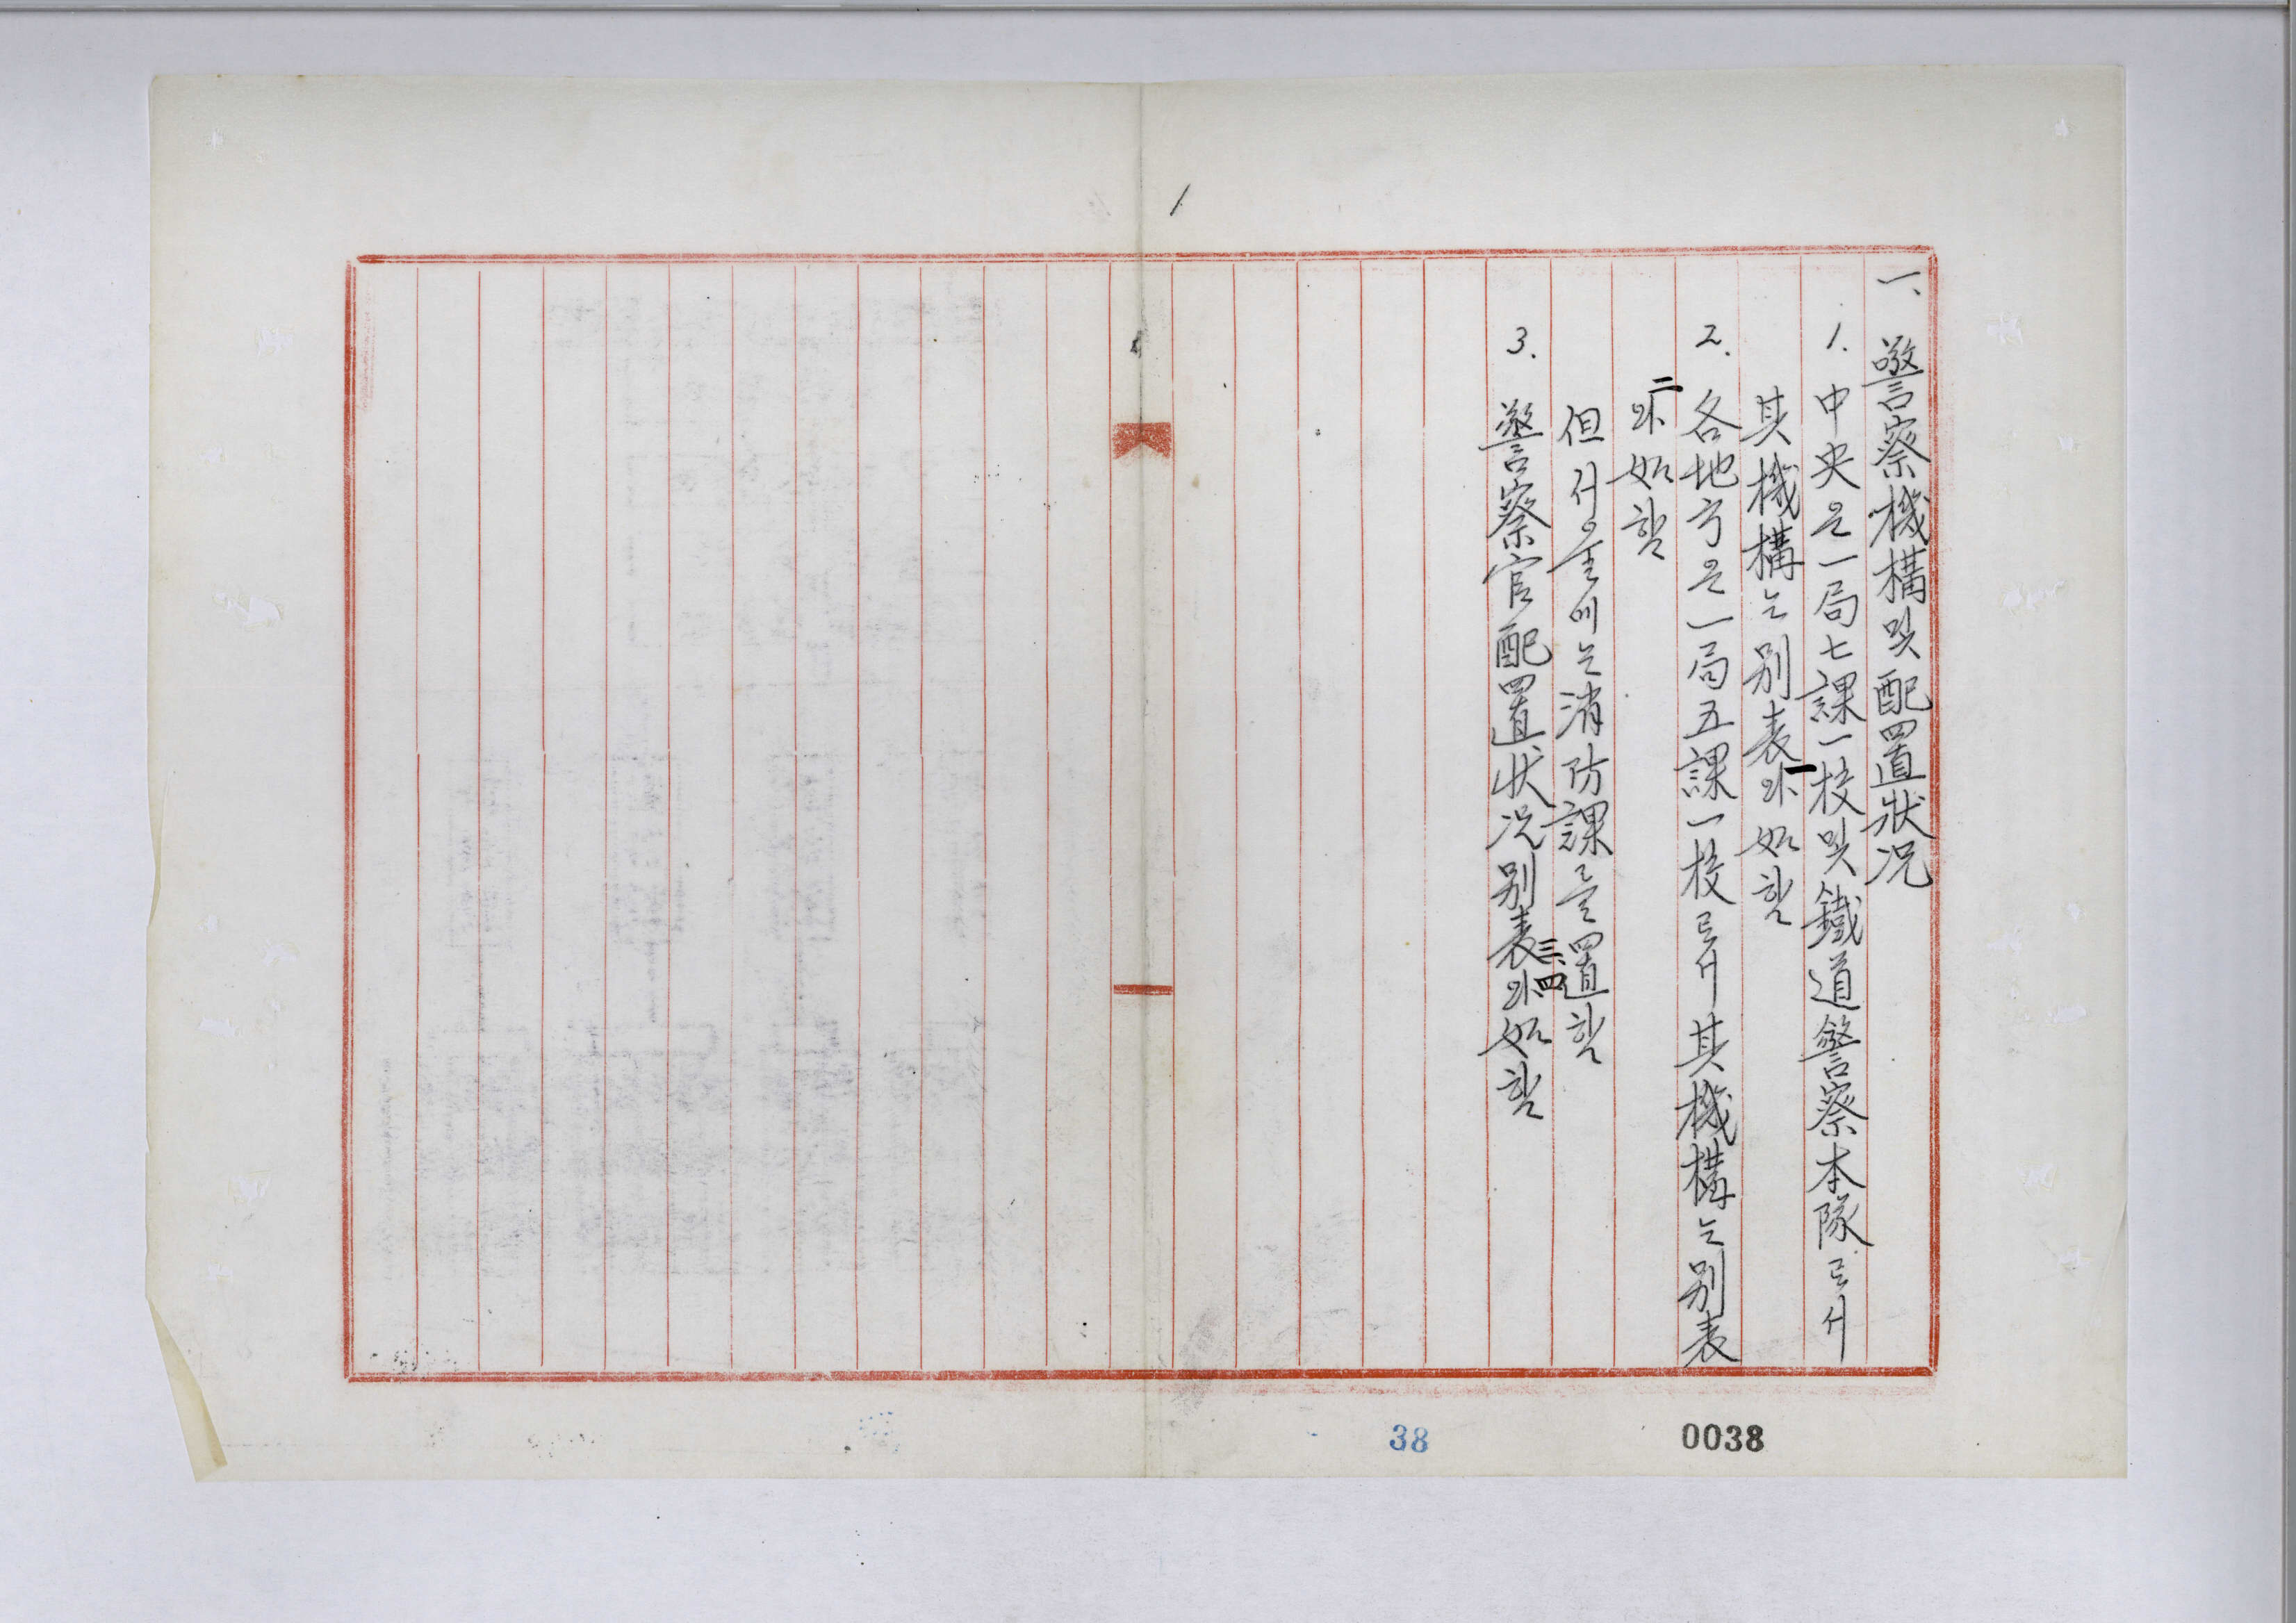 1
一、警察機構및配置狀況
1. 中央은一局七課一校및鐵道警察本隊로서
其機構는別表一와如함
2. 各地方은一局五課一校로서其機構는別表
二와如함
但서울에는消防課를置함
3. 警察官配置狀況別表三、四와如함
38
0038